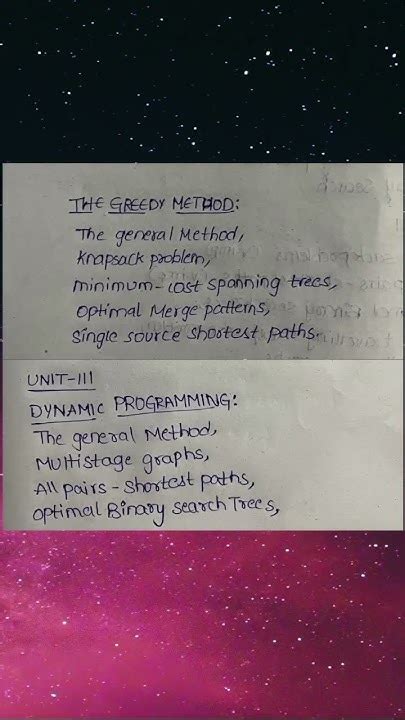 THE GREEDY METHOD:
The general Method,
Knapsack problem,
minimum-cost spanning trees,
Optimal Merge patterns,
Single source shortest paths.
UNIT-III
DYNAMIC PROGRAMMING:
The general Method,
Multistage graphs,
All pairs - shortest paths,
Optimal Binary search Trees,